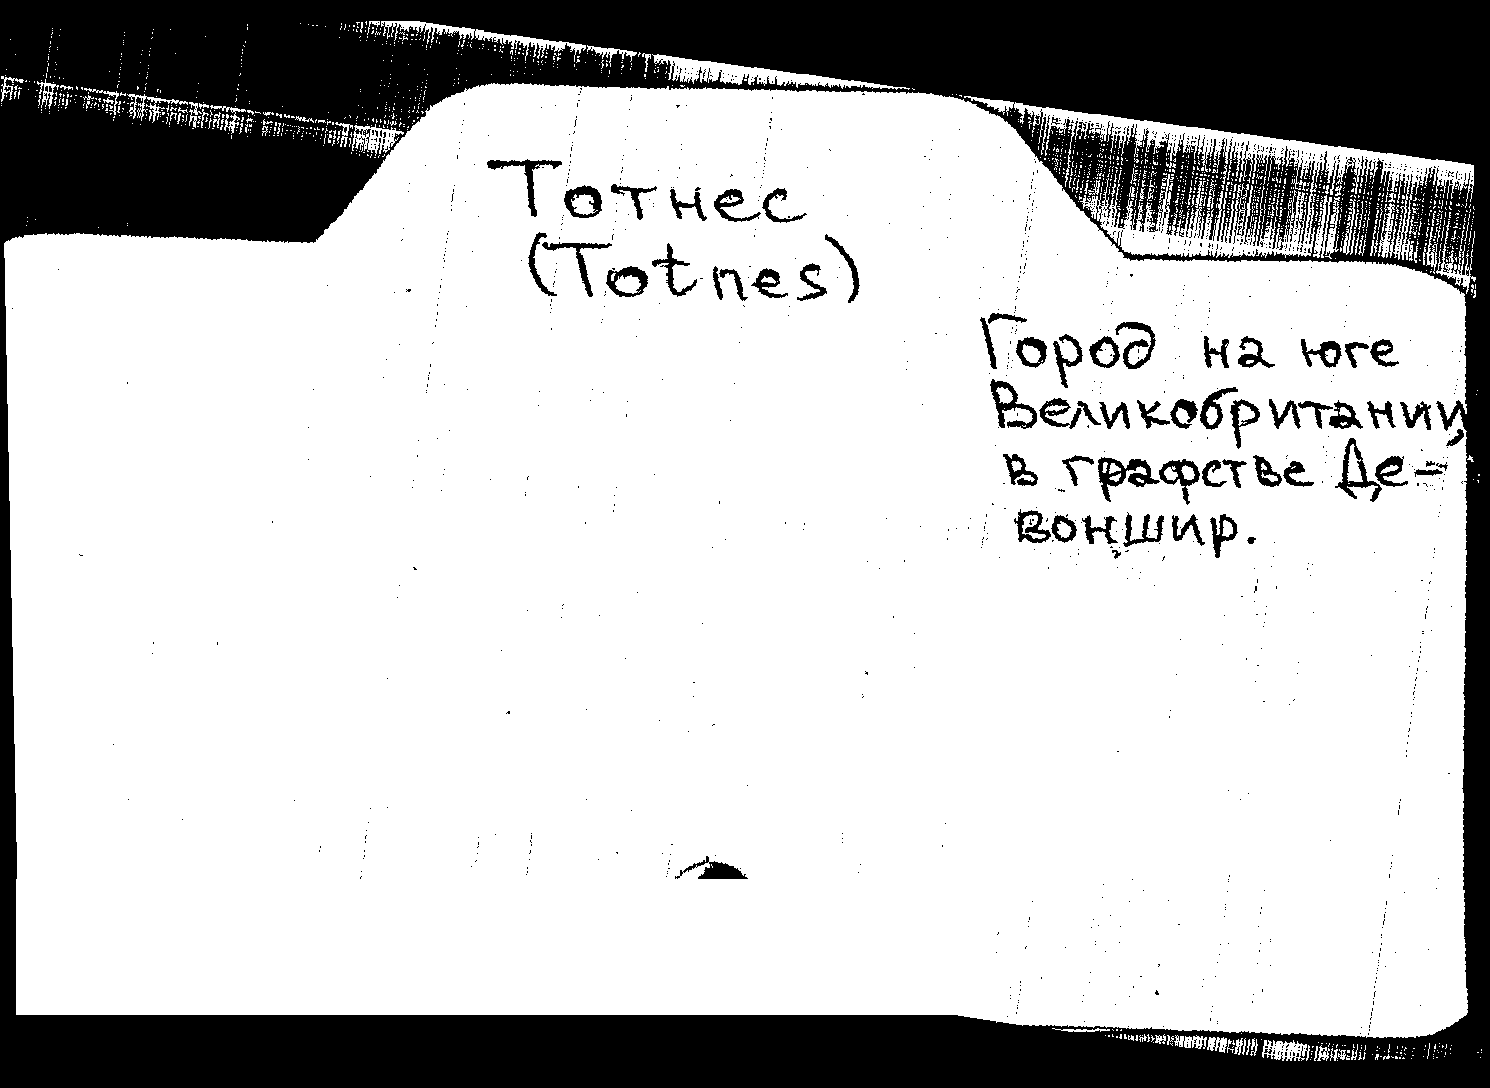 Тотнес
(Totnes)
Город на юге
Великобритании,
в графстве Де=
воншир.